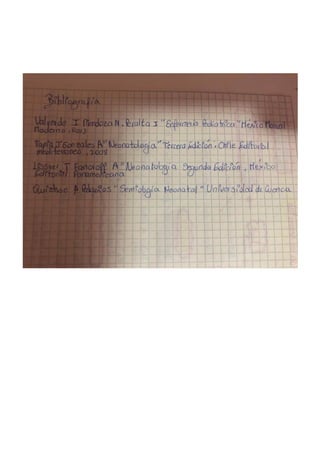 Bibliografia
Valverde I Mendoza N. Peralta I "Enfermeria Pediatrica" Mexico Manual
Moderno, 2013
Tapia J. Gonzales A "Neonatología" Tercera Edición. Chile Editorial
mediterraneo, 2008
T Fanaroff A "Neonatología Segunda Edición, México
Editorial Panamericana
A. "Semiología Neonatal" Universidad de Cuenca